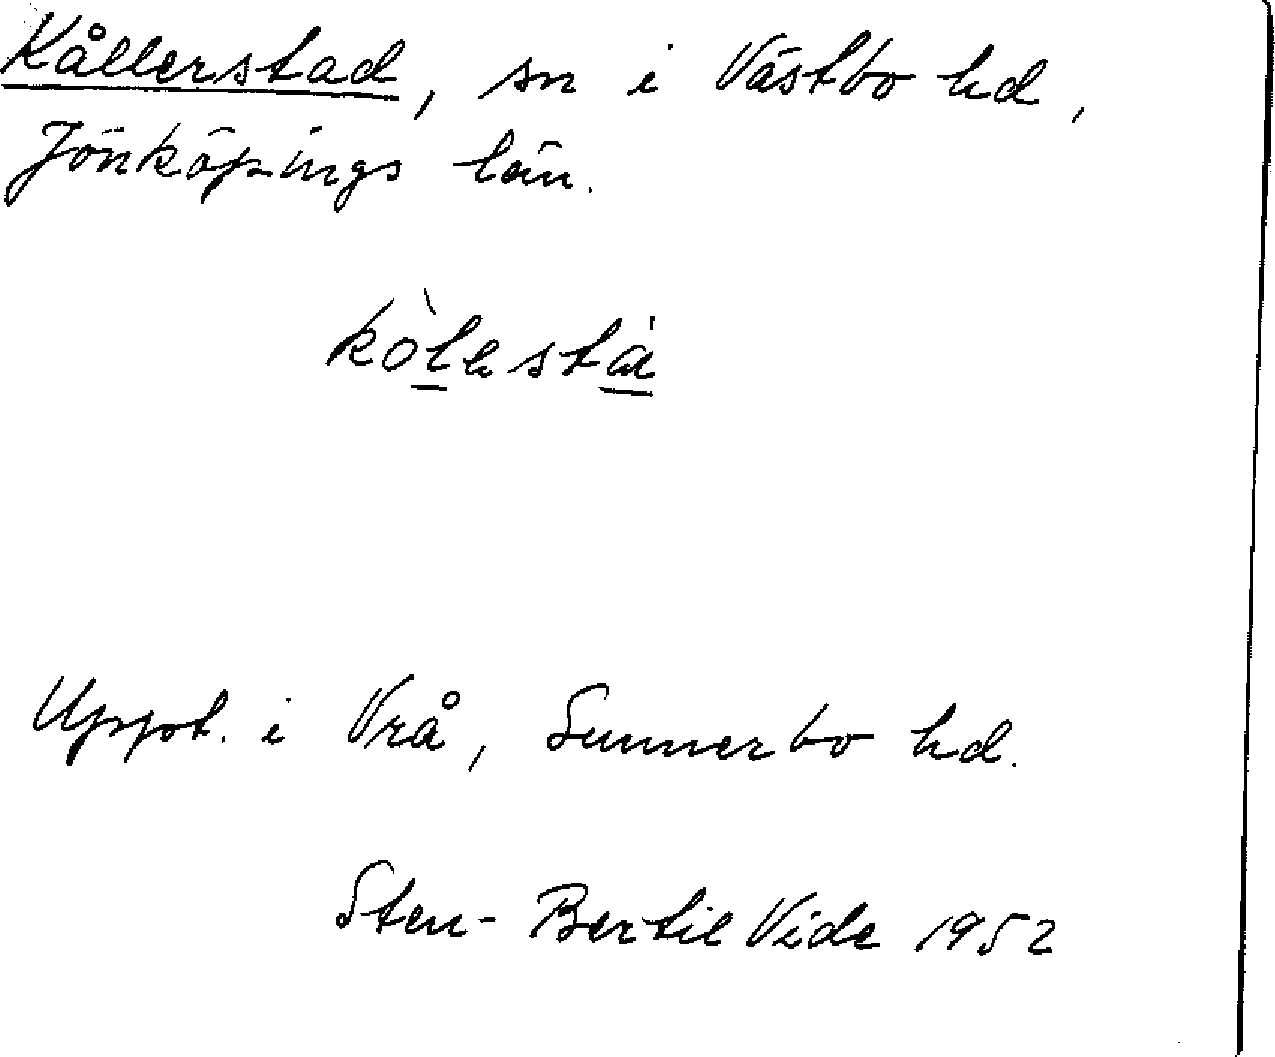 Kållerstad, sn i Västbo hd,
Jönköpings län.
Uppt. i Vrå, Sunnerbo hd.
Sten-Bertil Vide 1952